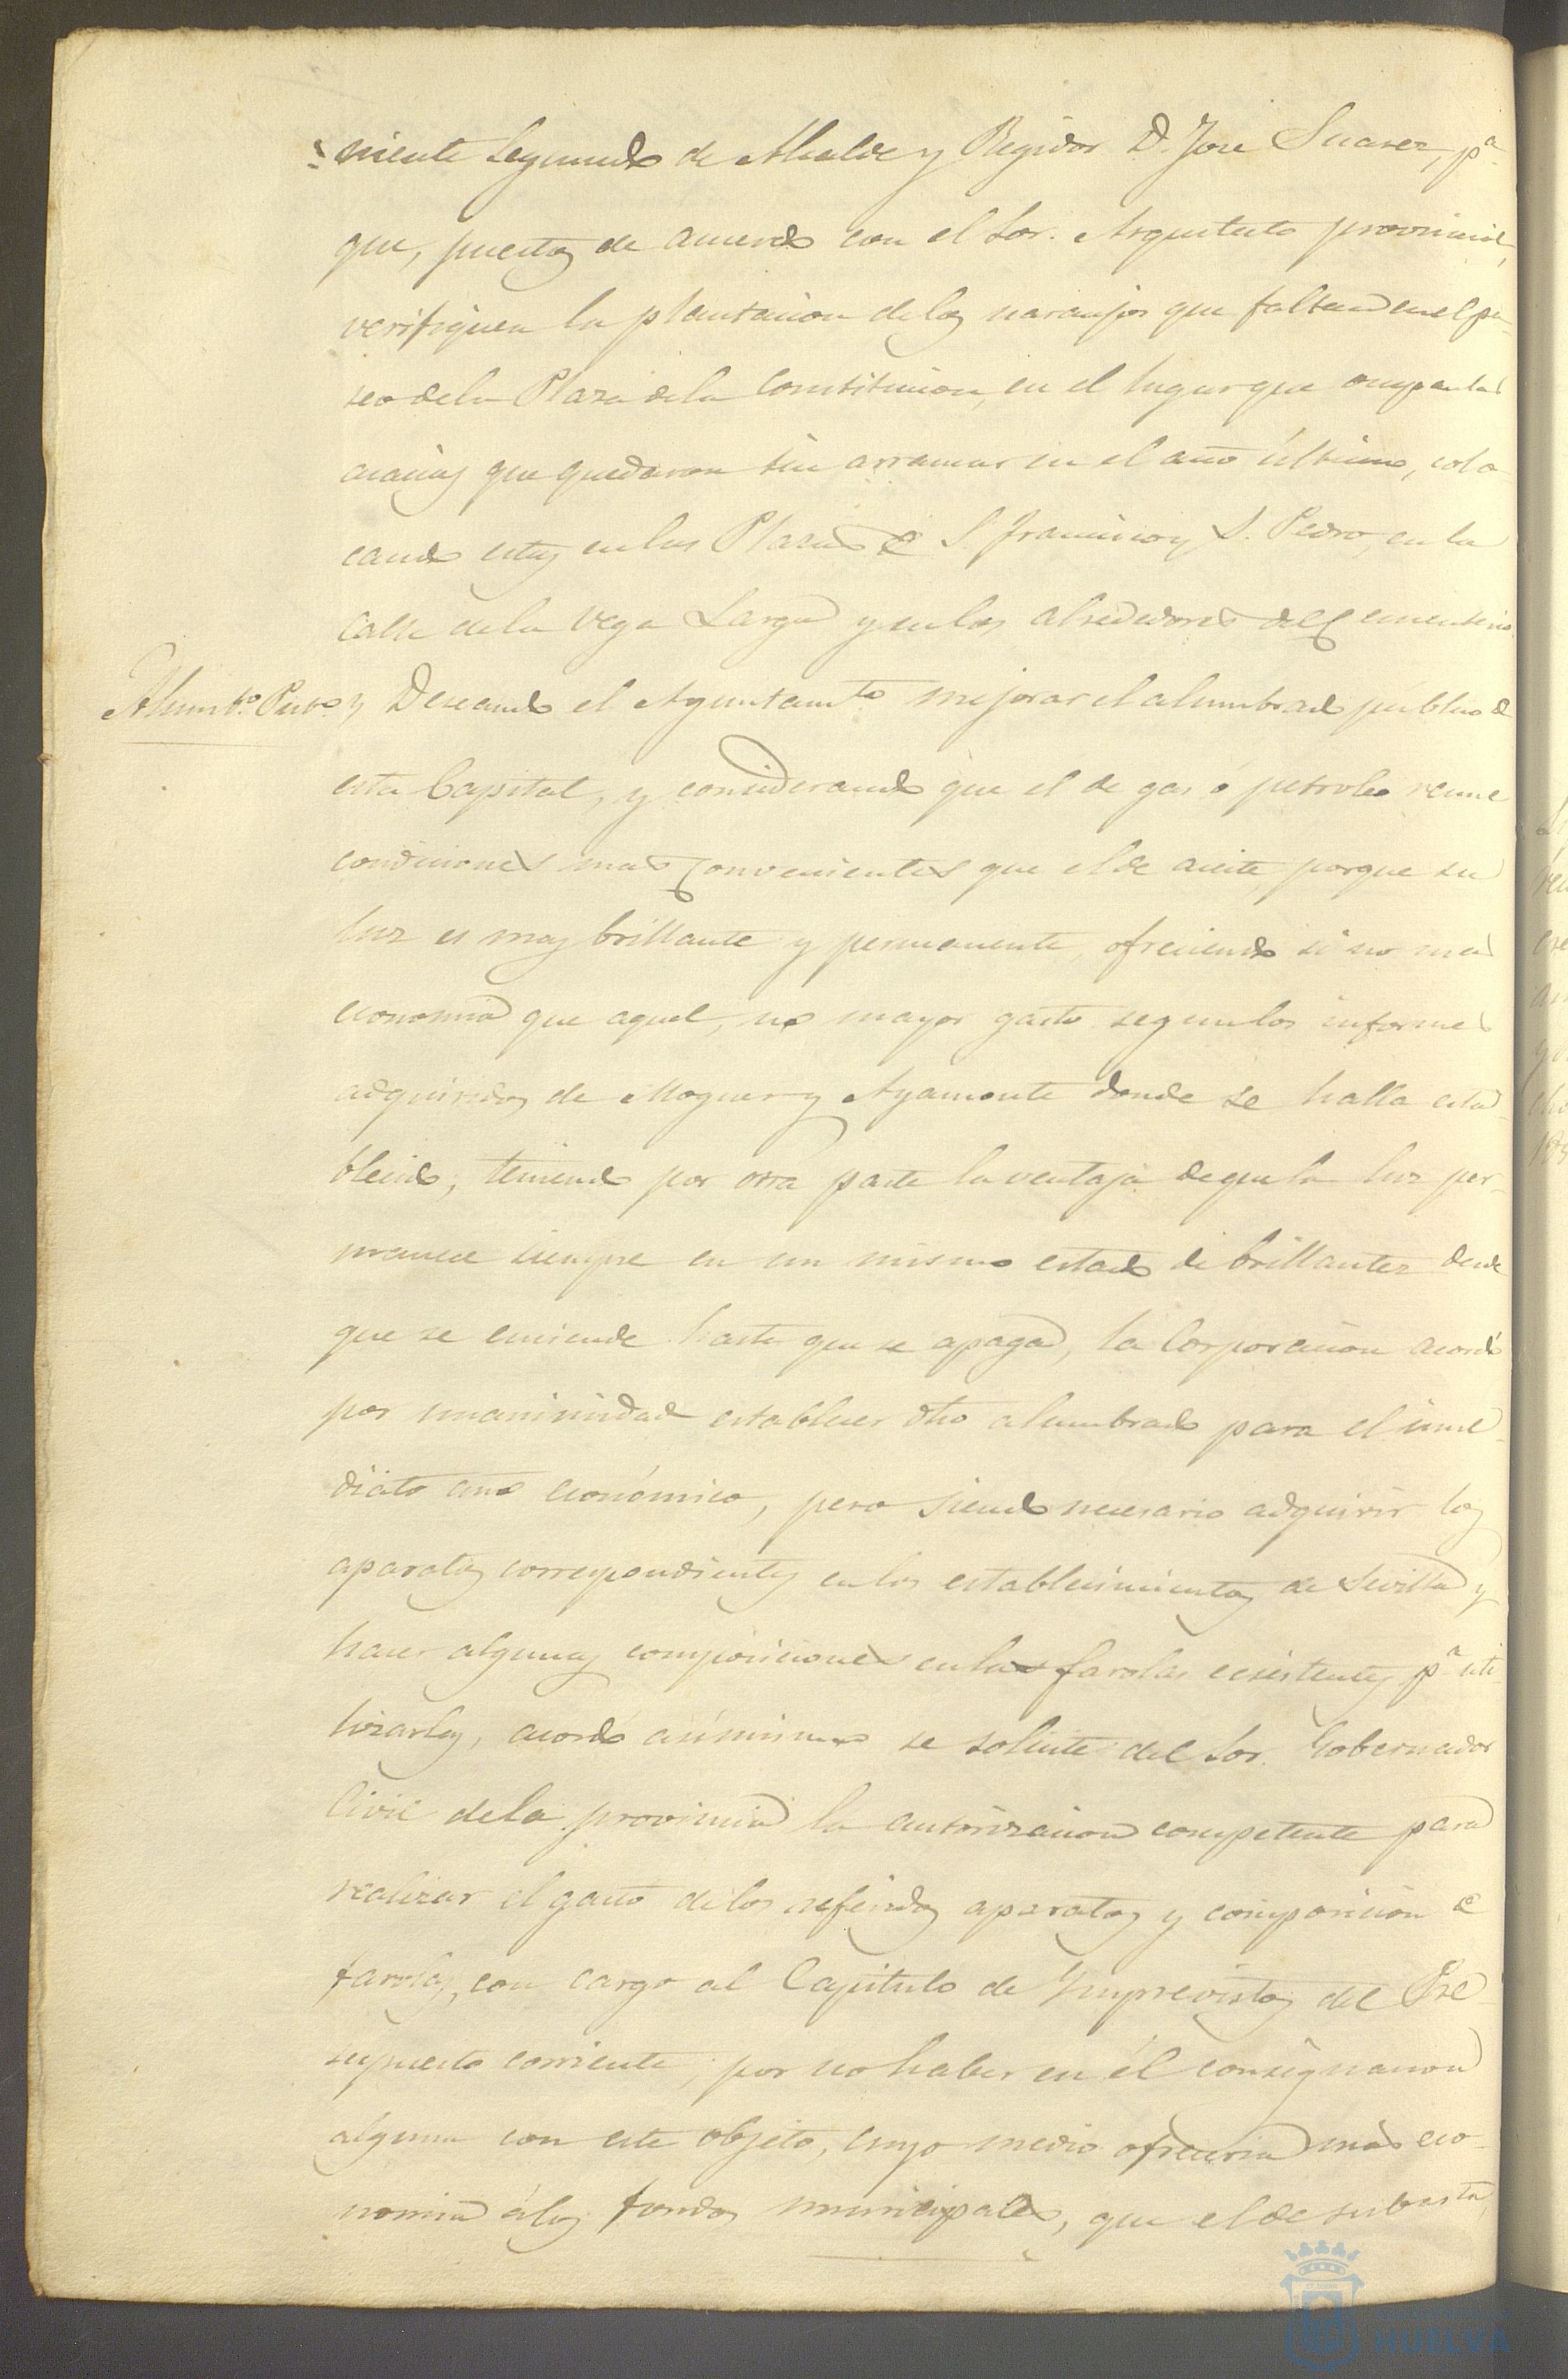 niente Segundo de Alcalde y Regidor D. Jose Suarez, pª
que, puestos de acuerdo con el Sor. Arquitecto provincial,
verifiquen la plantacion de los naranjos que faltan en el pa-
seo de la Plaza de la Constitucion, en el lugar que ocupan las
acacias que quedaron sin arrancar en el año último, colo-
cando estas en las Plazas de S. Francisco y S. Pedro, en la
calle de la Vega Larga y en los alrededores del Cementerio.
Alumbº. Pubcº. y Deseando el Ayuntamtº. mejorar el alumbrado publico de
esta Capital, y considerando que el de gas ó petroleo reune
condiciones mas convenientes que el de aceite, porque su
luz es mas brillante y permanente, ofreciendo si no mas
economia que aquel, no mayor gasto segun los informes
adquiridos de Moguer y Ayamonte donde se halla esta-
blecido, teniendo por otra parte la ventaja de que la luz per-
manece siempre en un mismo estado de brillantez desde
que se enciende hasta que se apaga, la Corporacion acordó
por unanimidad establecer dho alumbrado para el inme-
diato año económico, pero siendo necesario adquirir los
aparatos correspondientes en los establecimientos de Sevilla y
hacer algunas composiciones en las farolas ecsistentes pª uti-
lizarlas, acordó asímismo se solicite del Sor. Gobernador
Civil de la provincia la autorizacion competente para
realizar el gasto de los referidos aparatos y composicion de
farolas, con cargo al Capitulo de Imprevistos del Pre-
supuesto corriente, por no haber en él consignacion
alguna con este objeto, cuyo medio ofreceria más eco-
nomia á los fondos municipales, que el de subasta,
HUELVA